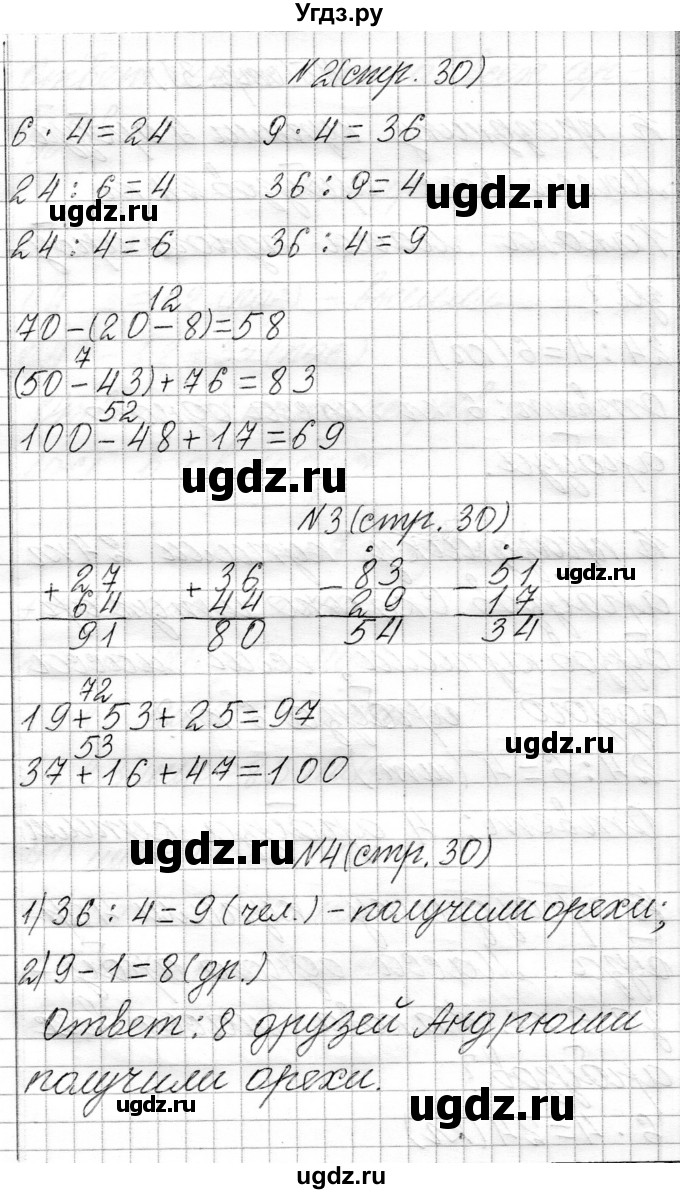 Угдз.ру
№2(стр. 30)
6 · 4 = 24 9 · 4 = 36
24 : 6 = 4 36 : 9 = 4
ugdz.ru ugdz.ru
24 : 4 = 6 36 : 4 = 9
12
70-(20-8)=58
7
(50-43)+76=83
52
100-48+17=69
ugdz.ru
№3(стр. 30)
+ 27 + 36 - 83 - 51
64 44 29 17
91 80 54 34
ugdz.ru
72
19+53+25=97
53
37+16+47=100
ugdz.ru
ugdz.ru
№4(стр. 30)
1) 36 : 4 = 9 (чел.) - получили орехи;
2) 9 - 1 = 8 (др.)
Ответ: 8 друзей Андрюши
получили орехи.
ugdz.ru ugdz.ru
ugdz.ru